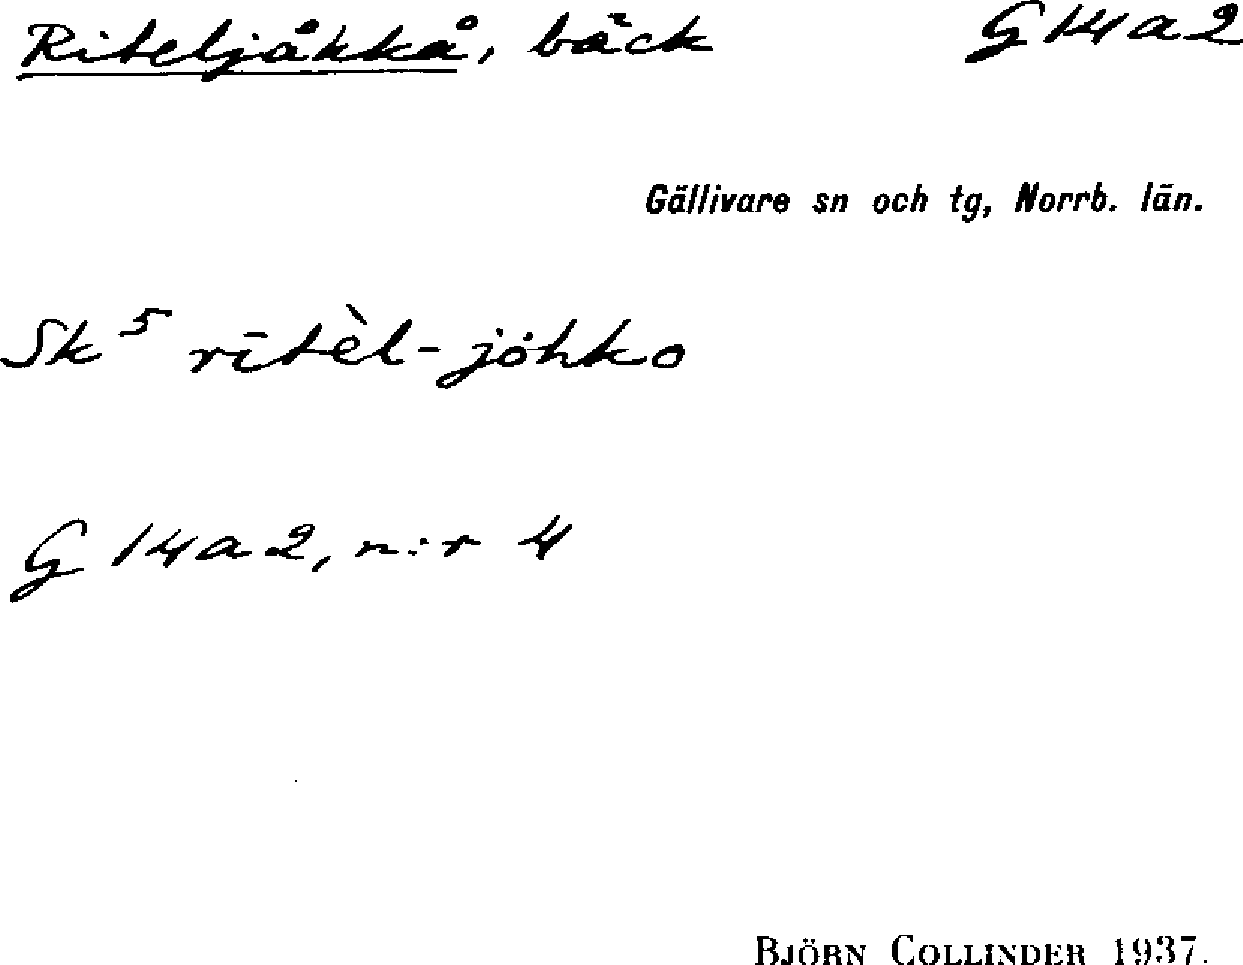 Riteljåkkå, bäck G14a2
Gällivare sn och tg, Norrb. län.
Sk 5 rītèl-jȯhko
G 14a2, n:r 4
BJÖRN COLLINDER 1937.